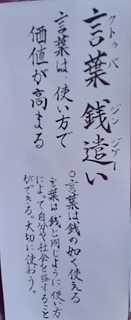 言葉銭遣い
クトゥバ ジンジケー
言葉は、使い方で
価値が高まる
○言葉は銭の如く使える
言葉は銭と同じように使い方
によって自分や社会を益すること
ができる。大切に使おう。